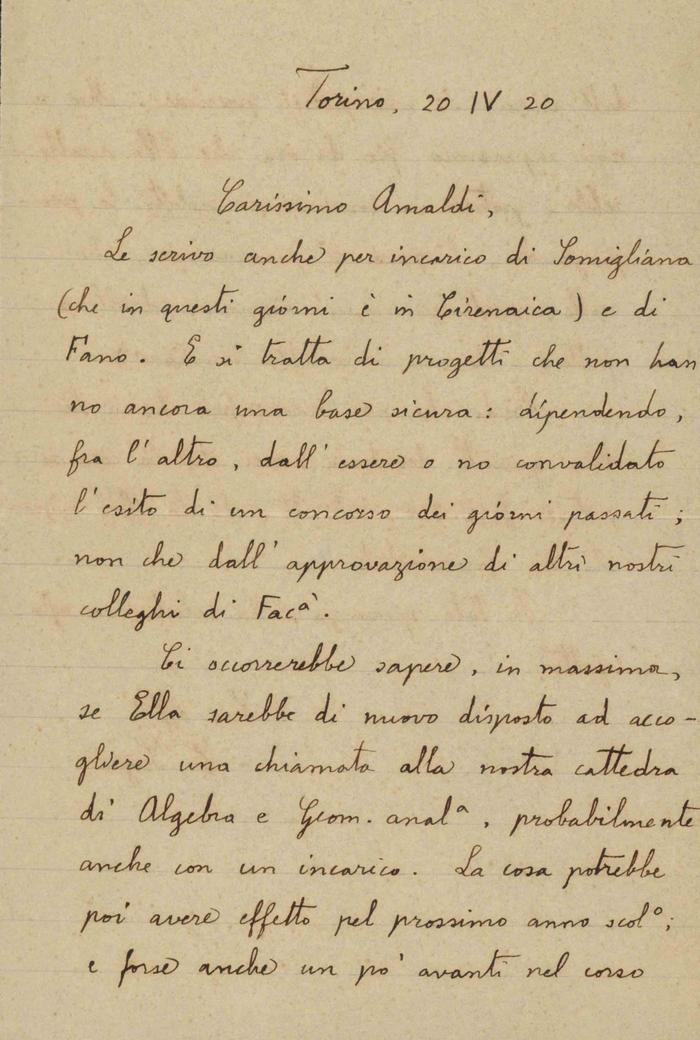 Torino, 20 IV 20
Carissimo Amaldi,
Le scrivo anche per incarico di Somigliana
(che in questi giorni è in Cirenaica) e di
Fano. E si tratta di progetti che non han
no ancora una base sicura: dipendendo,
fra l'altro, dall'essere o no convalidato
l'esito di un concorso dei giorni passati;
non che dall'approvazione di altri nostri
colleghi di Facà.
Ci occorrerebbe sapere, in massima,
se Ella sarebbe di nuovo disposto ad acco-
gliere una chiamata alla nostra cattedra
di Algebra e Geom. analª, probabilmente
anche con un incarico. La cosa potrebbe
poi avere effetto pel prossimo anno scolº;
e forse anche un po' avanti nel corso